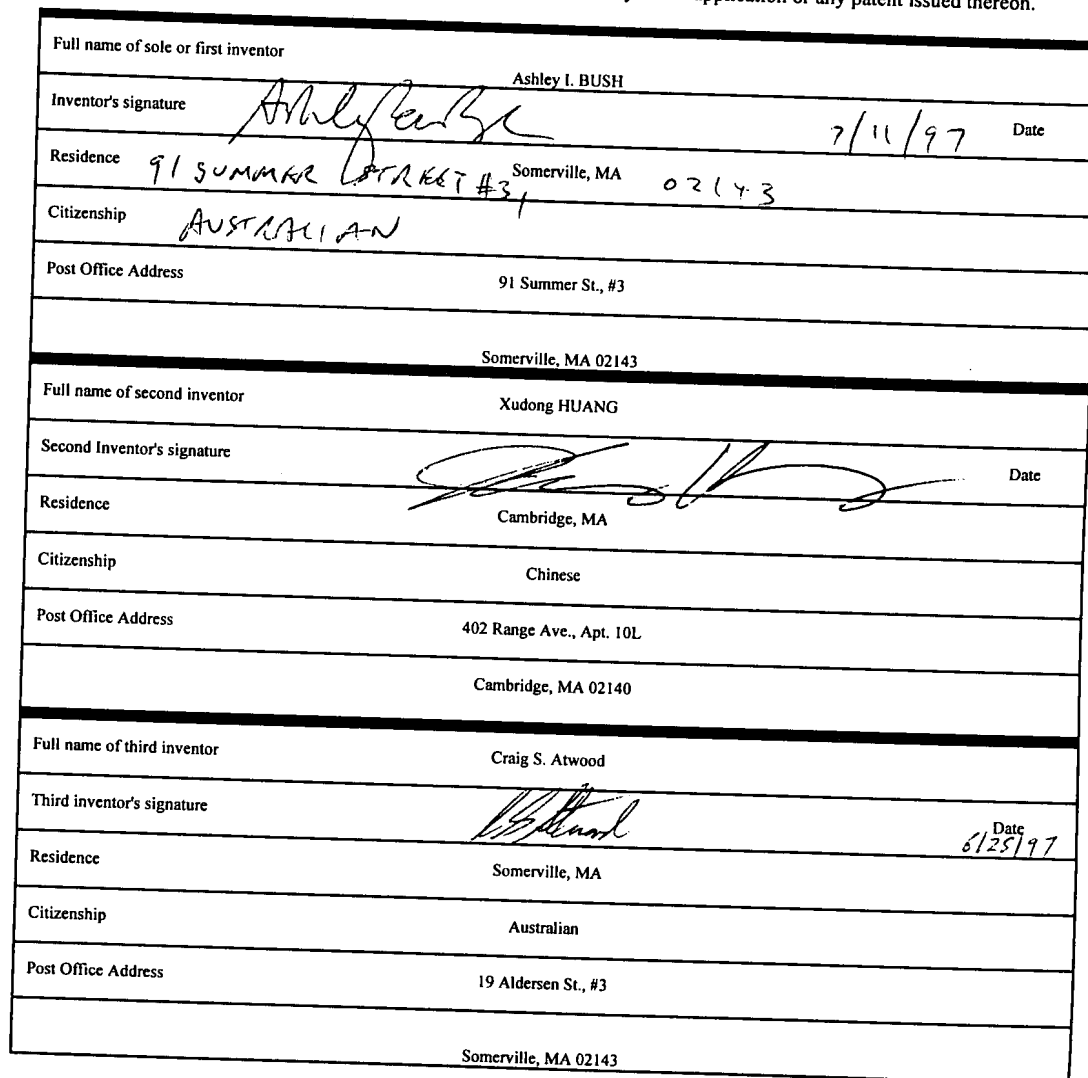 application or any patent issued thereon.
Full name of sole or first inventor
Ashley I. BUSH
Inventor's signature
7/11/97 Date
Residence 91 SUMMER STREET #3, Somerville, MA 02143
Citizenship AUSTRALIAN
Post Office Address 91 Summer St., #3
Somerville, MA 02143
Full name of second inventor Xudong HUANG
Second Inventor's signature Date
Residence Cambridge, MA
Citizenship Chinese
Post Office Address 402 Range Ave., Apt. 10L
Cambridge, MA 02140
Full name of third inventor Craig S. Atwood
Third inventor's signature Date
6/25/97
Residence Somerville, MA
Citizenship Australian
Post Office Address 19 Aldersen St., #3
Somerville, MA 02143